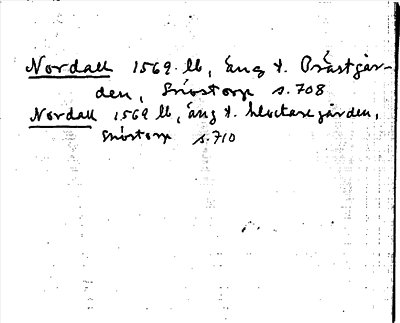 Nordall 1569 lb, äng t. Prästgår-
den, Snöstorp s. 708
Nordall 1569 lb, äng t. klockaregården,
Snöstorp s. 710